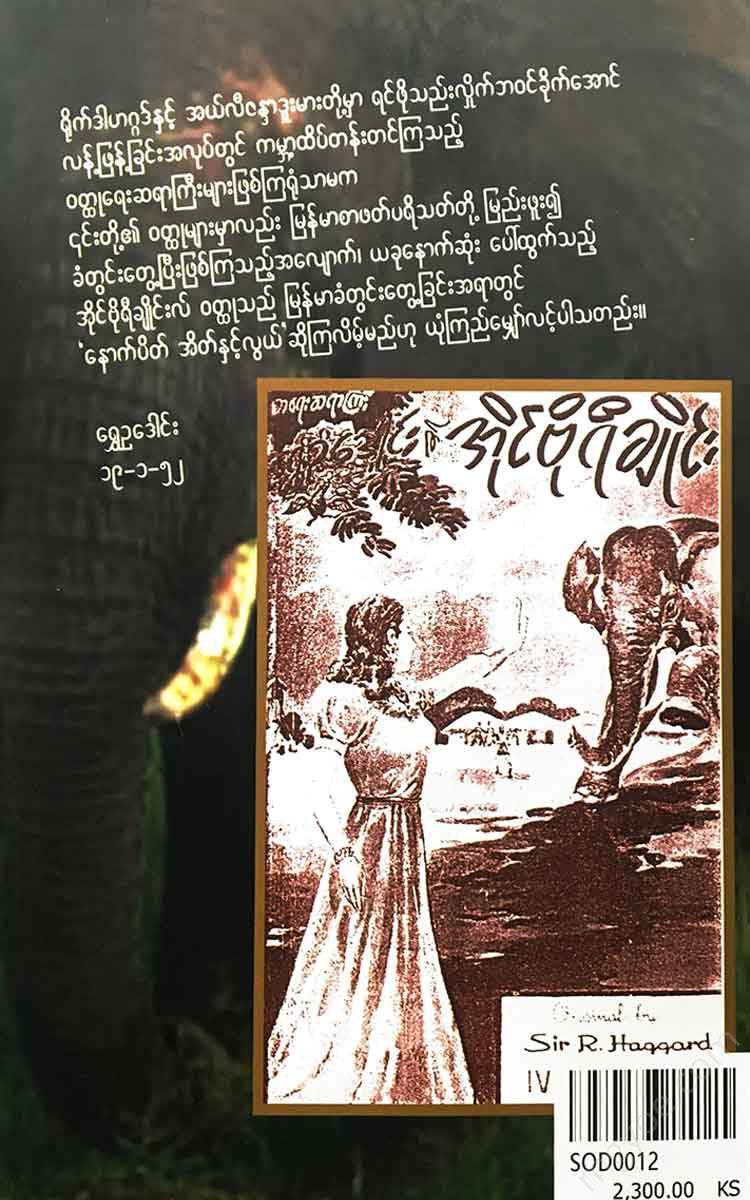 ရိုက်ဒါဟဂ္ဂဒ်နှင့် အယ်လီဇန္ဒာဒူးမားတို့မှာ ရင်ဖိုသည်းလှိုက်ဘဝင်ခိုက်အောင်
လန့်ဖြန့်ခြင်းအလုပ်တွင် ကမ္ဘာ့ထိပ်တန်းတင်ကြသည့်
ဝတ္ထုရေးဆရာကြီးများဖြစ်ကြရုံသာမက
၎င်းတို့၏ ဝတ္ထုများမှာလည်း မြန်မာစာဖတ်ပရိသတ်တို့ မြည်းဖူး၍
ခံတွင်းတွေ့ပြီးဖြစ်ကြသည့်အလျောက်၊ ယခုနောက်ဆုံး ပေါ်ထွက်သည့်
အိုင်ဗိုရီချိုင်းလ် ဝတ္ထုသည် မြန်မာခံတွင်းတွေ့ခြင်းအရာတွင်
'နောက်ပိတ် အိတ်နှင့်လွယ်'ဆိုကြလိမ့်မည်ဟု ယုံကြည်မျှော်လင့်ပါသတည်း။
ရွှေဥဒေါင်း
၁၉-၁-၅၂
စာရေးဆရာကြီး
အိုင်ဗိုရီချိုင်း
Original by
Sir R. Haggard
IV
SOD0012
2,300.00 KS